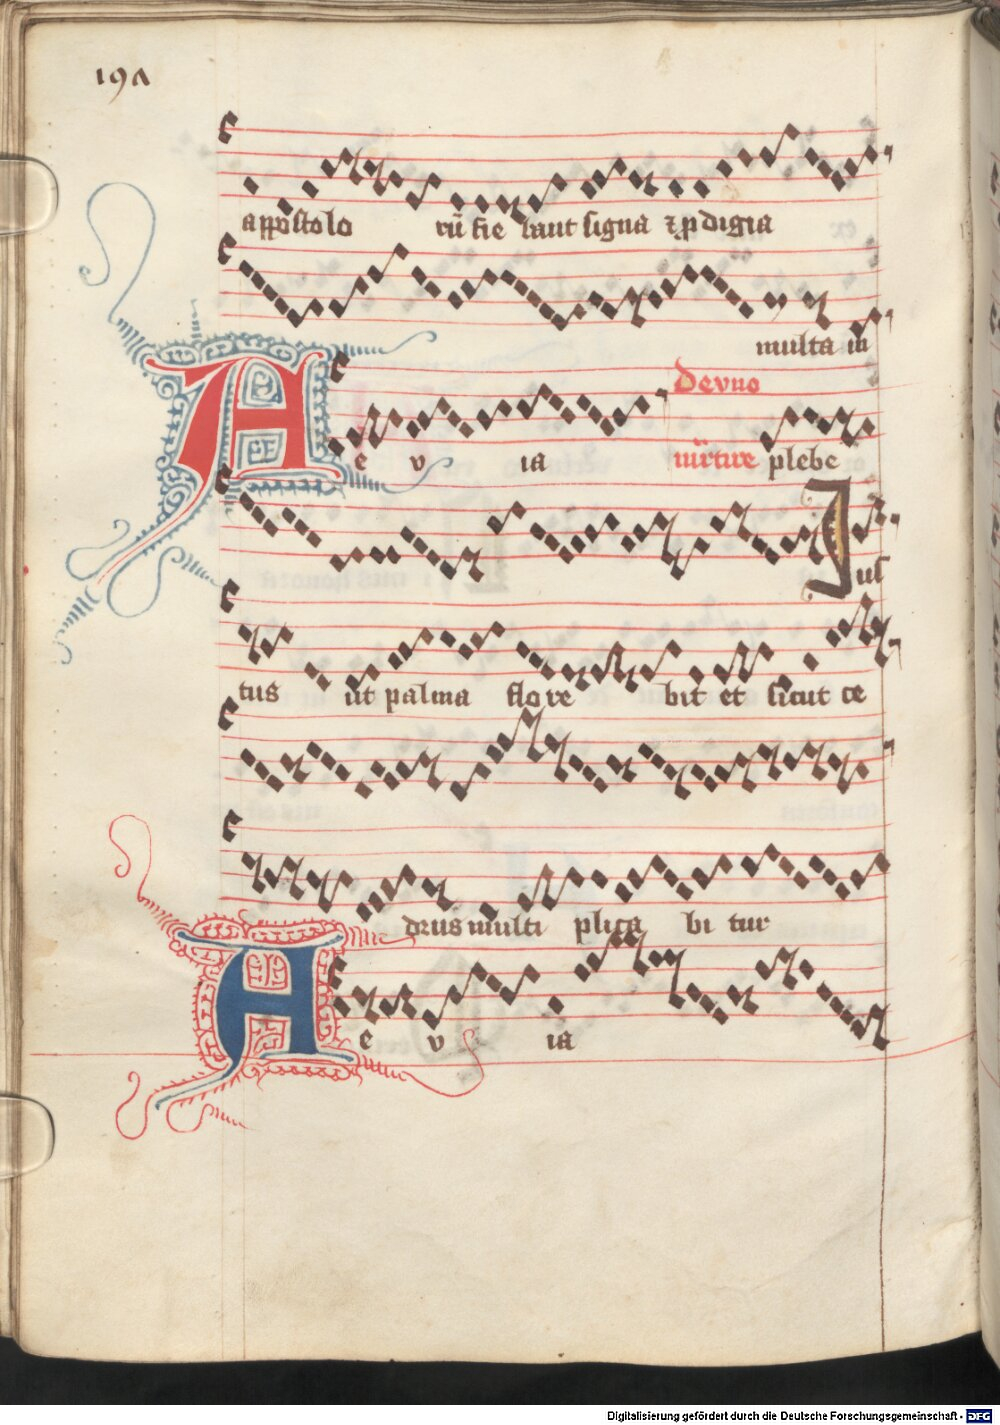 197
appostolo rū fie bant signa et pdigia
multa in
De vno
A e v ia mr̄tire plebe
Jus
tus ut palma flore bit et sicut ce
drus multi plica bi tur
A e v ia
Digitalisierung gefördert durch die Deutsche Forschungsgemeinschaft - DFG